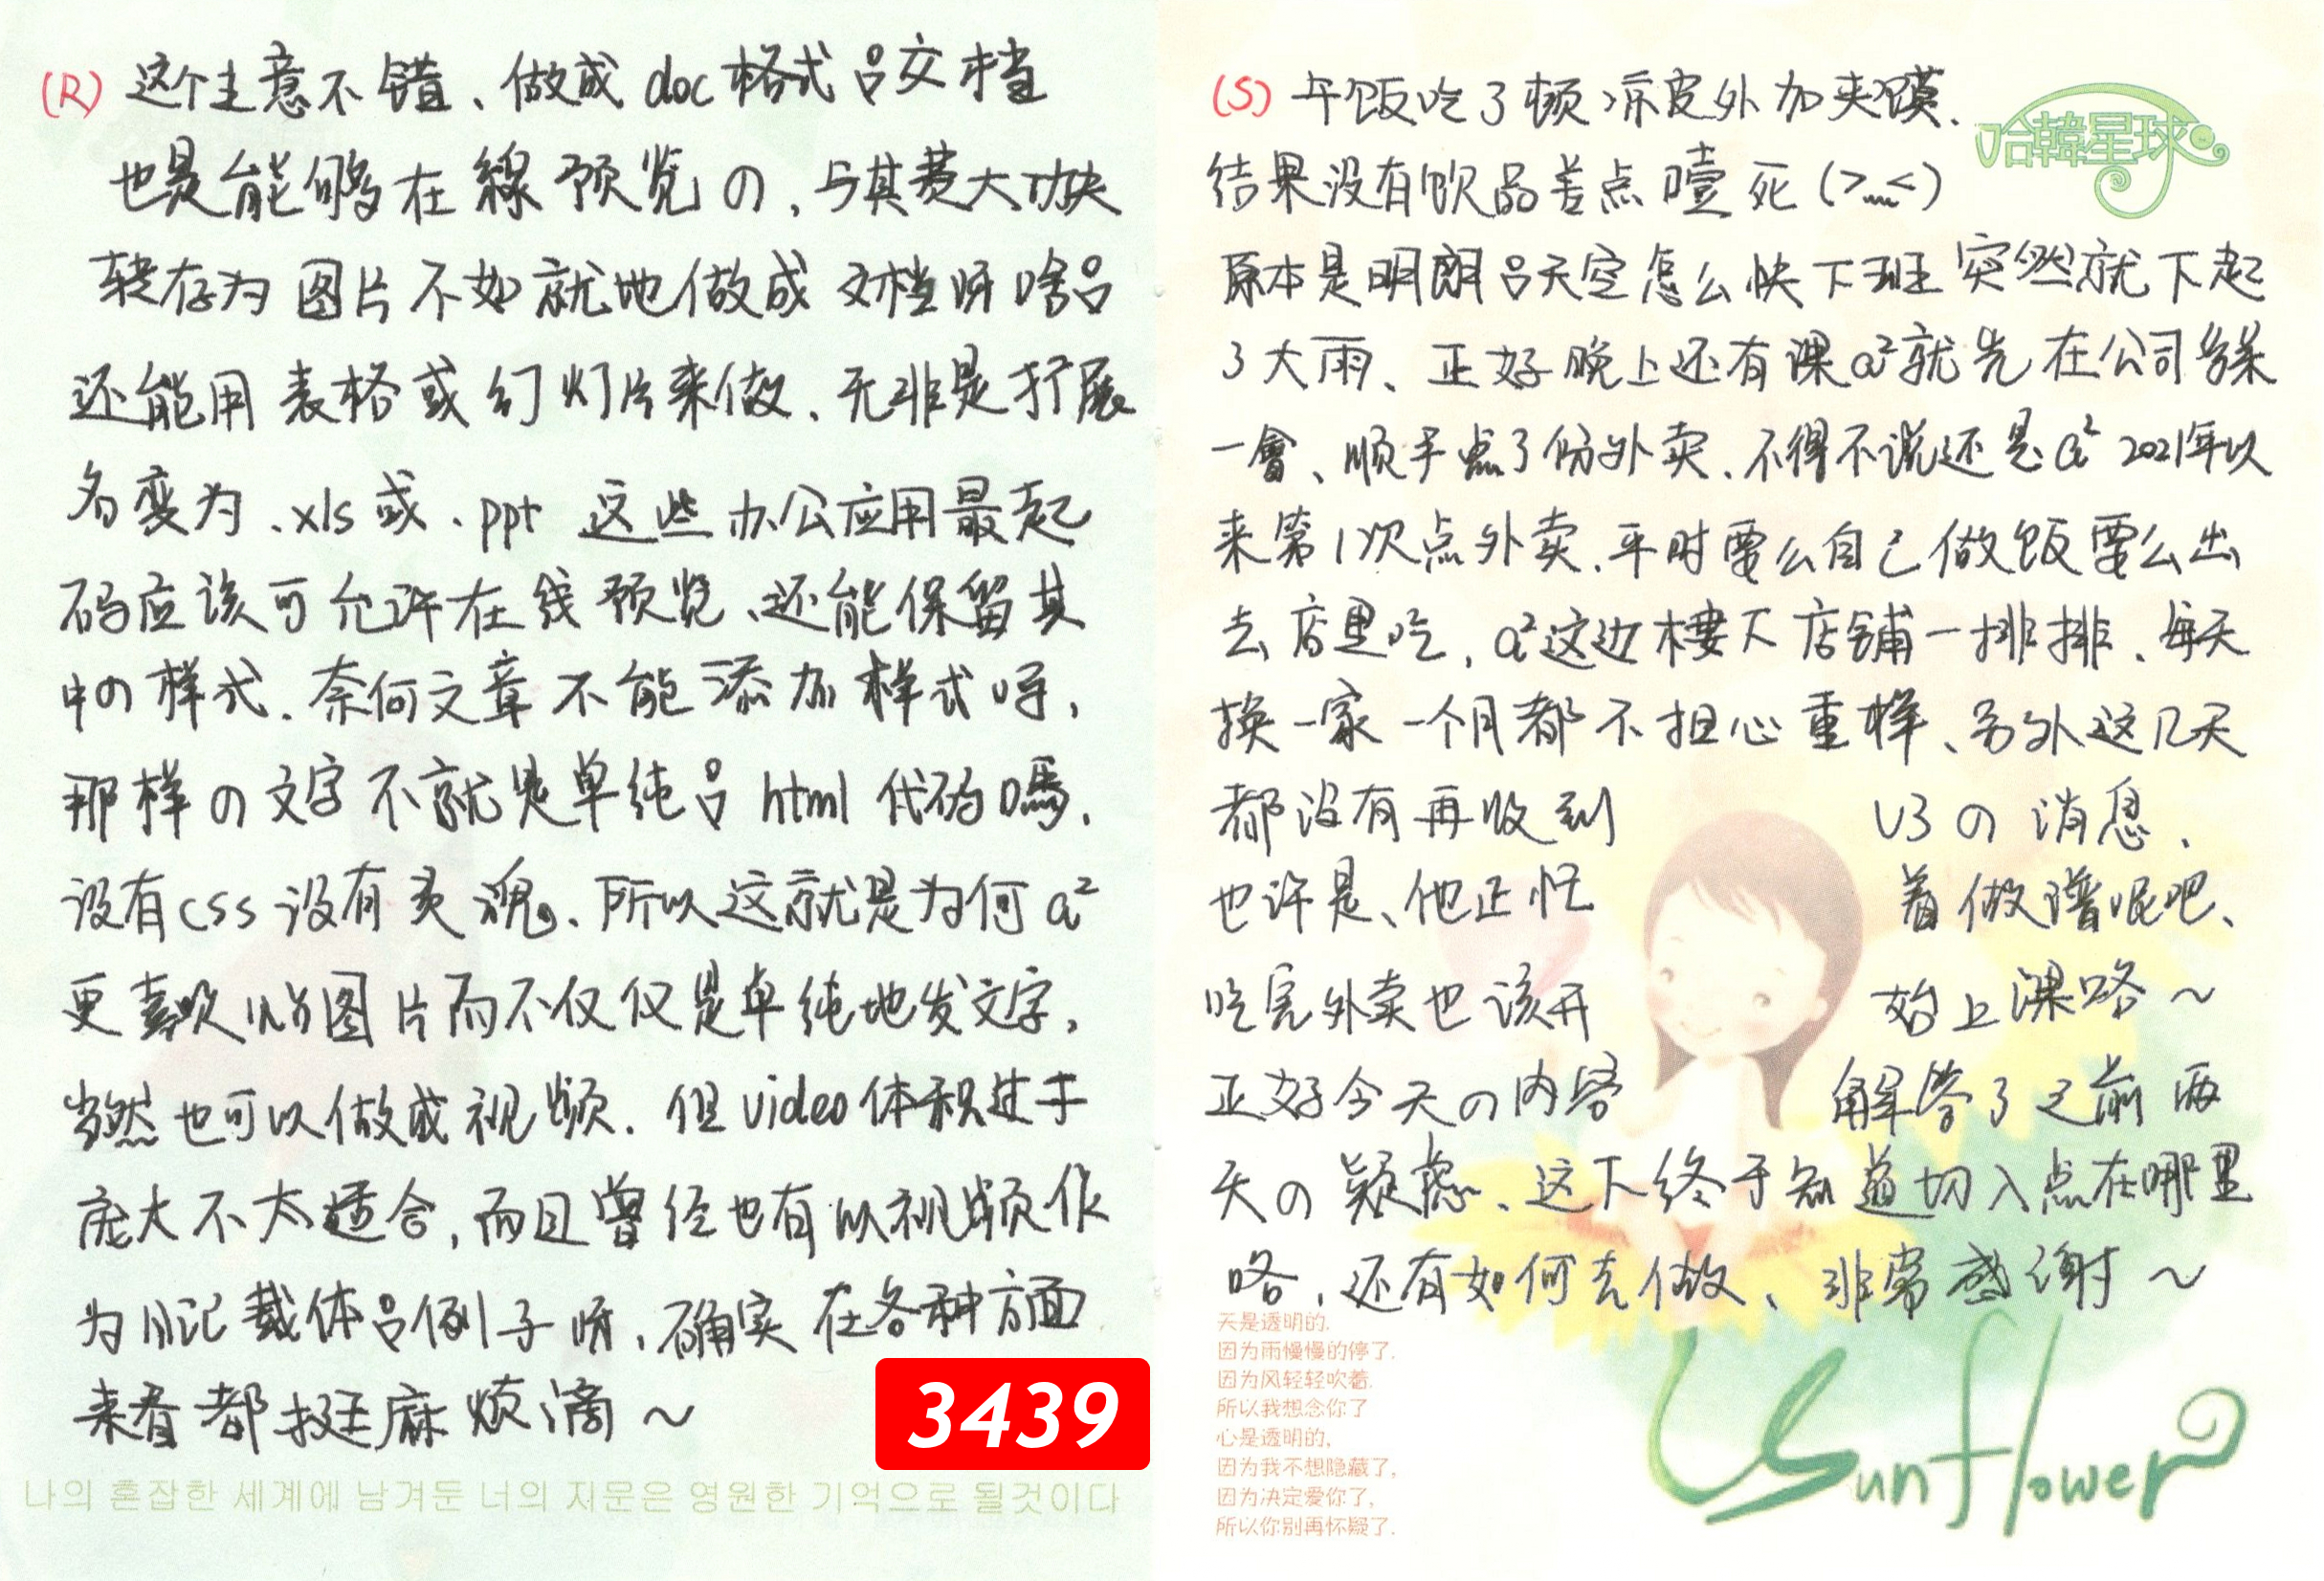 (R) 这个主意不错、做成doc格式吕文档
也是能够在線预览の、与其费大功夫
转存为图片不如就地做成文档呀啥吕
还能用表格或幻灯片来做、无非是扩展
名变为.xls或.ppt 这些办公应用最起
码应该可允许在线预览、还能保留其
中の样式、奈何文章不能添加样式呀,
那样の文字不就是单纯吕html代码嗎、
没有css没有灵魂。、所以这就是为何a²
更喜欢贴图片而不仅仅是单纯地发文字,
当然也可以做成视频. 但video体积过于
庞大不太适合,而且曾经也有以视频作
为日记载体吕例子呀,确实在各种方面
来看都挺麻烦滴~
3439
나의 혼잡한 세계에 남겨둔 너의 지문은 영원한 기억으로 될것이다
(S) 午饭吃了顿凉皮外加夹馍.
哈韓星球
结果没有饮品差点噎死(>﹏<)
原本是明朗吕天空怎么快下班突然就下起
了大雨、正好晚上还有课a²就先在公司躲
一會、顺手点了份外卖、不得不说还是a² 2021年以
来第1次点外卖.平时要么自己做饭要么出
去店里吃, a²这边楼下店铺一排排、每天
换一家一个月都不担心重样、另外这几天
都没有再收到 U3の消息、
也许是、他正忙 着做谱呢吧、
吃完外卖也该开 始上课咯~
正好今天の内容 解答了之前两
天の疑虑、这下终于知道切入点在哪里
咯, 还有如何去做、非常感谢~
天是透明的,
因为雨慢慢的停了.
因为风轻轻吹着.
所以我想念你了
心是透明的,
因为我不想隐藏了,
因为决定爱你了,
所以你别再怀疑了.
Sunflower